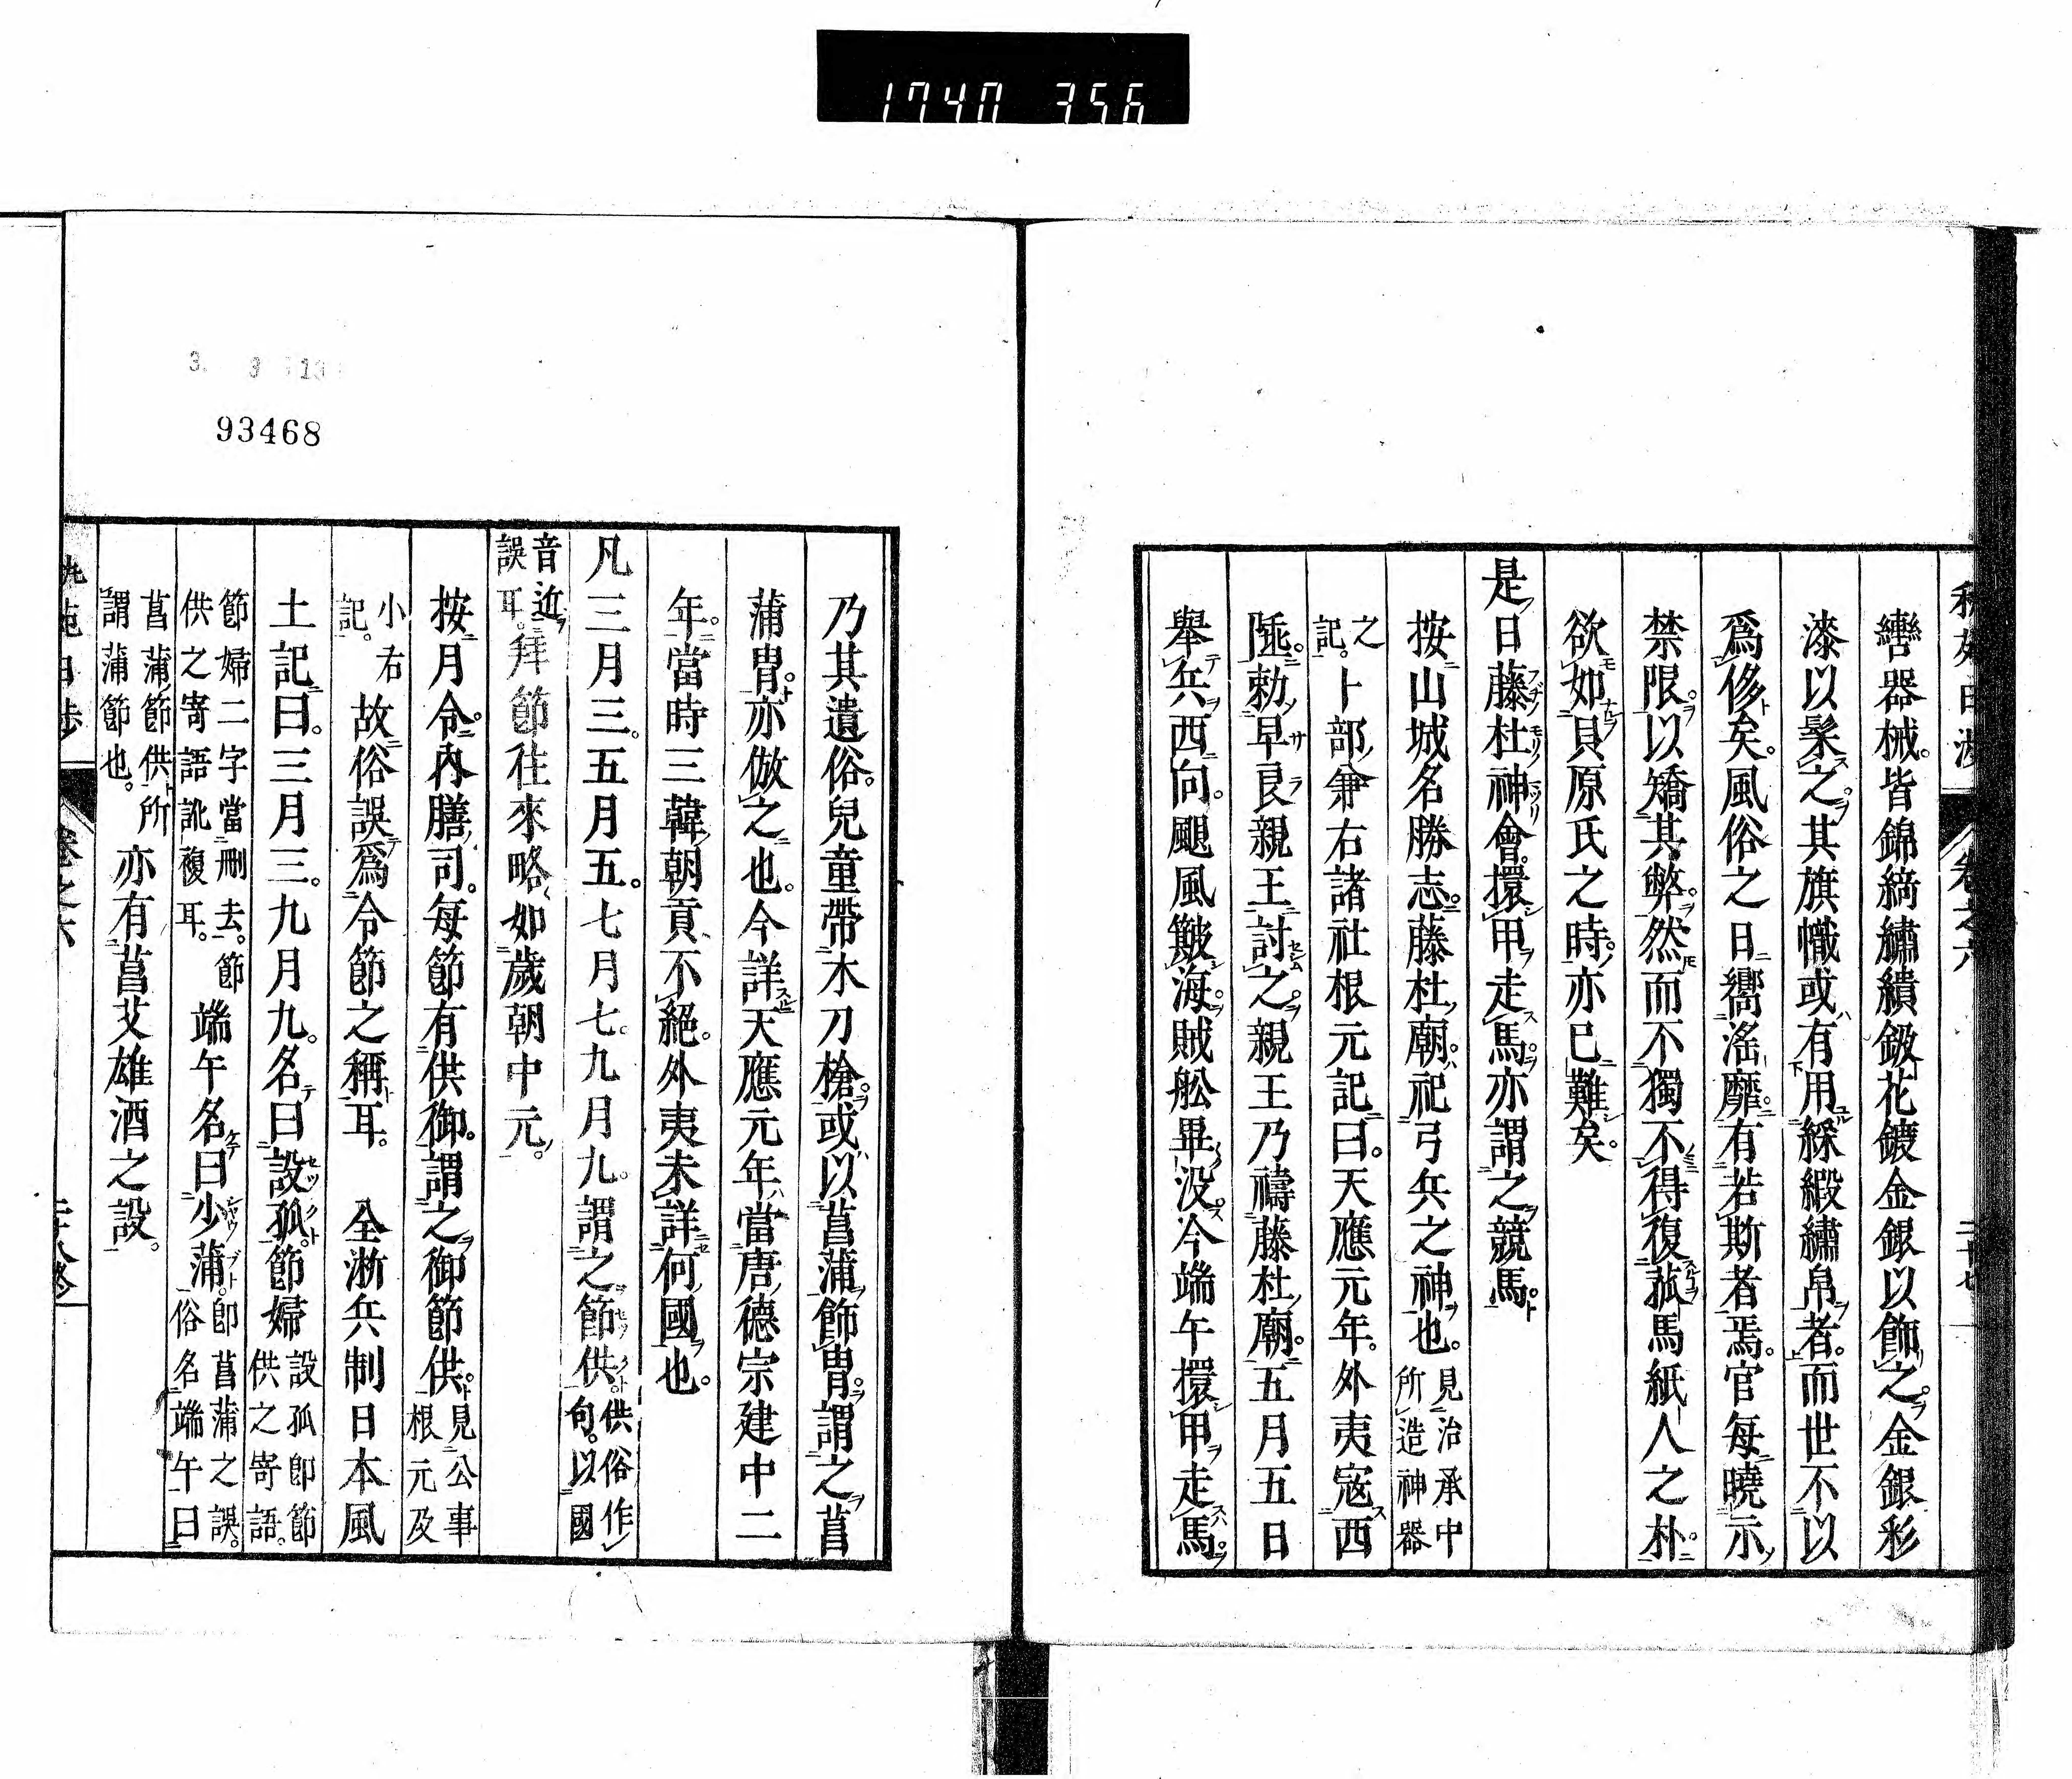 1740 356
轡器械皆錦綺繡繢鈒花鍍金銀以飾之金銀彩
漆以髹之其旗幟或有用綵緞繡帛者而世不以
爲侈矣風俗之日嚮滛靡有若斯者焉官每曉示
禁限以矯其弊然而不獨不得復菰馬紙人之朴
欲如貝原氏之時亦已難矣
是日藤杜神會擐甲走馬亦謂之競馬
按山城名勝志藤杜廟祀弓兵之神也見治承中所造神器
之記卜部兼右諸社根元記曰天應元年外夷寇西
陲勅早良親王討之親王乃禱藤杜廟五月五日
舉兵西向颶風皺海賊舩畢没今端午擐甲走馬
3. 3 13
93468
乃其遺俗兒童帶木刀槍或以菖蒲飾冑謂之菖
蒲冑亦倣之也今詳天應元年當唐德宗建中二
年當時三韓朝貢不絕外夷未詳何國也
凡三月三五月五七月七九月九謂之節供供俗作句以國
音近誤耳拜節往來略如歲朝中元
按月令內膳司每節有供御謂之御節供見公事根元及
小右記故俗誤爲令節之稱耳 全浙兵制日本風
土記曰三月三九月九名曰設孤節婦設孤卽節供之寄語
節婦二字當刪去節供之寄語訛複耳端午名曰少蒲卽菖蒲之誤俗名端午曰
菖蒲節供所謂蒲節也亦有菖艾雄酒之設